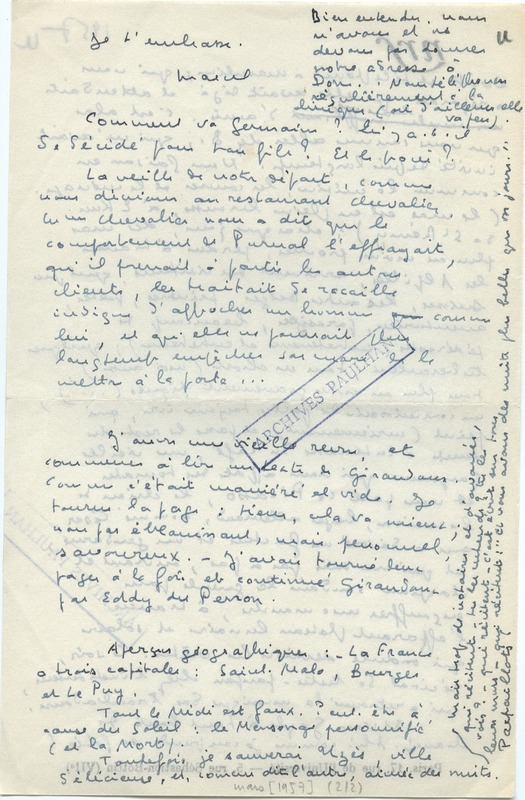 Je t'embrasse.
Marcel
Bien entendu, nous
n'avons et ne
devons pas donner
notre adresse à
Dom. : Nous téléphonons
régulièrement à la
clinique (où d'ailleurs elle
va peu).
Comment va Germaine ? Lui a-t-il
se décidé pour ton fils ? Et le pour ?
La veille de notre départ, comme
nous dînions au restaurant Chevalier
la Chevalier nous a dit que le
comportement de Purnal l'effrayait,
qu'il prenait à partie les autres
clients, les traitait de racailles
indignes d'approcher un homme comme
lui, et qu'elle ne pourrait plus
longtemps empêcher son mari de le
mettre à la porte...
ARCHIVES PAULHAN
J'ouvre une vieille revue, et
commence à lire un texte de Giraudoux.
Comme c'était maniéré et vide. Je
tourne la page : tiens, cela va mieux :
non pas éblouissant, mais personnel
savoureux. - J'avais tourné deux
pages à la fois et continué Giraudoux
par Eddy du Perron.
Aperçus géographiques : - La France
a trois capitales : Saint-Malo, Bourges
et Le Puy.
Tout le Midi est faux. Peut-être à
cause du Soleil : le Mensonge personnifié
(et la Mort).
Toutefois je sauverai Uzès, ville
délicieuse, et, comme dit l'autre, aimée des nuits.
mais trop de notaires et d'avoués,
leurs murs
Et vous aurons des nuits plus belles que vos jours...
mars [1957] (2/2)